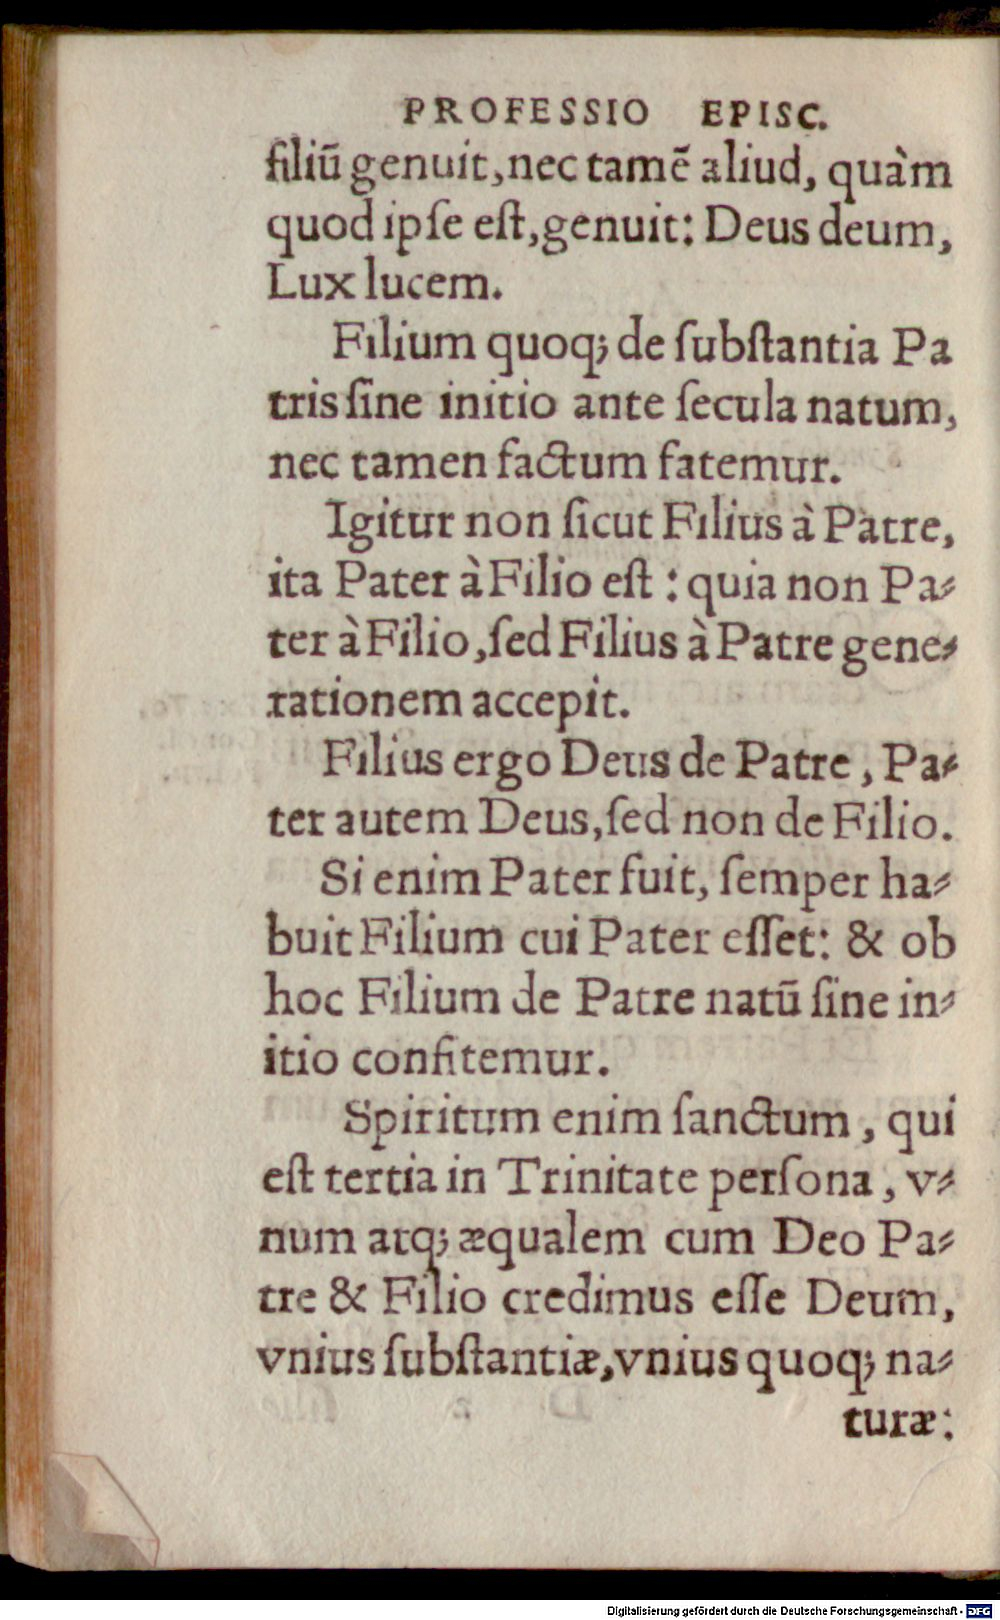 PROFESSIO EPISC.
filiũ genuit, nec tamẽ aliud, quàm
quod ipſe eſt, genuit: Deus deum,
Lux lucem.
Filium quoq; de ſubſtantia Pa
tris ſine initio ante ſecula natum,
nec tamen factum fatemur.
Igitur non ſicut Filius à Patre,
ita Pater à Filio eſt : quia non Pa-
ter à Filio, ſed Filius à Patre gene-
rationem accepit.
Filius ergo Deus de Patre, Pa-
ter autem Deus, ſed non de Filio.
Si enim Pater fuit, ſemper ha-
buit Filium cui Pater eſſet: & ob
hoc Filium de Patre natũ ſine in-
itio confitemur.
Spiritum enim ſanctum, qui
eſt tertia in Trinitate perſona, v-
num atq; æqualem cum Deo Pa-
tre & Filio credimus eſſe Deum,
vnius ſubſtantiæ, vnius quoq; na-
turæ:
Digitalisierung gefördert durch die Deutsche Forschungsgemeinschaft - DFG